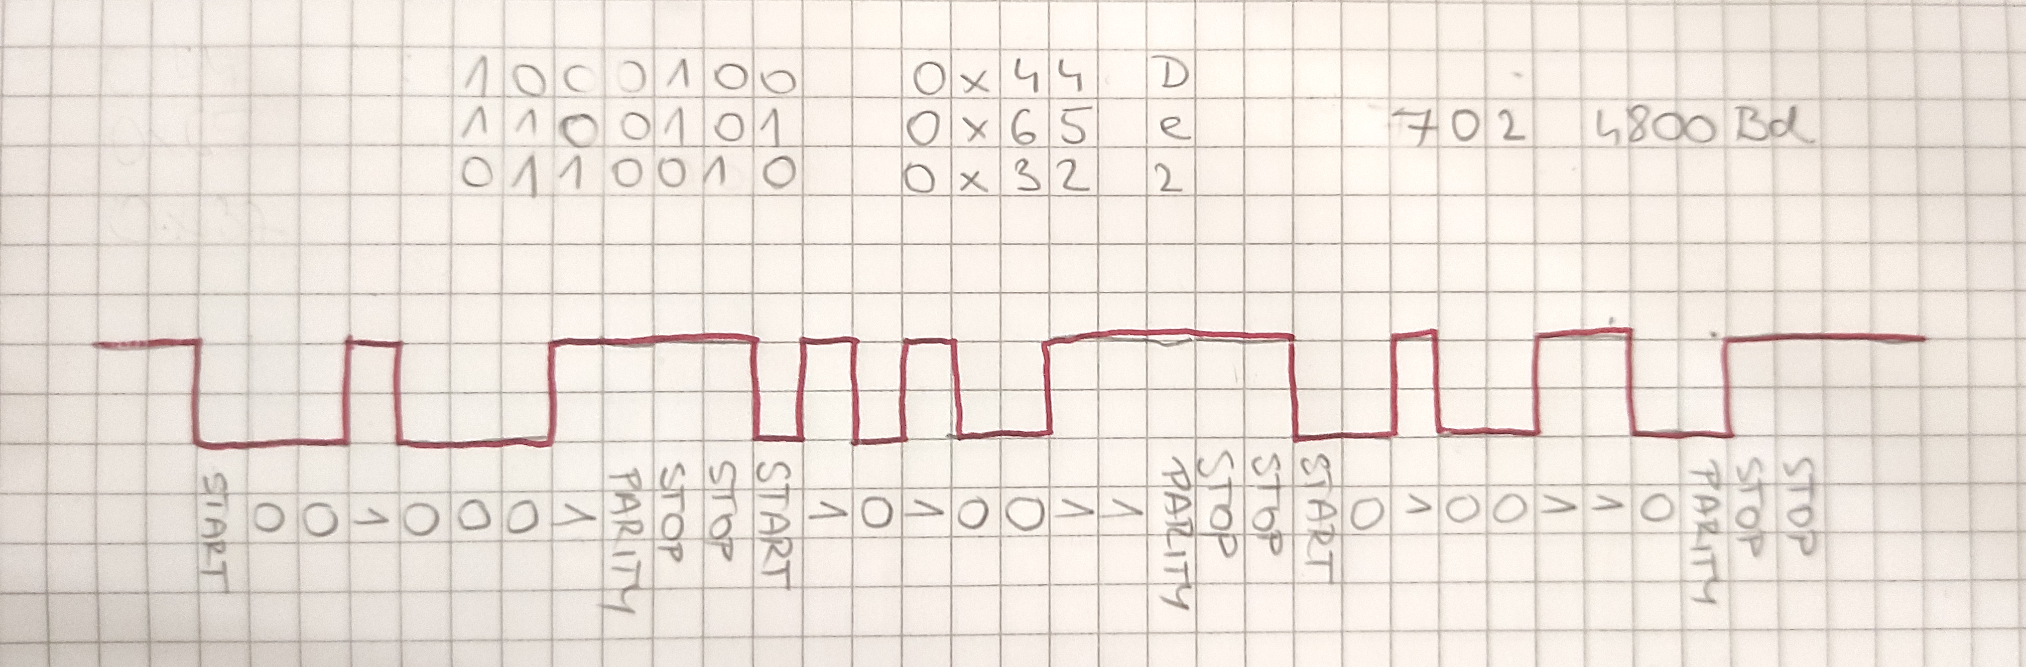 1000100 0x44 D
1100101 0x65 e 7O2 4800Bd
0110010 0x32 2
START 0 0 1 0 0 0 1 PARITY STOP STOP START 1 0 1 0 0 1 1 PARITY STOP STOP START 0 1 0 0 1 1 0 PARITY STOP STOP